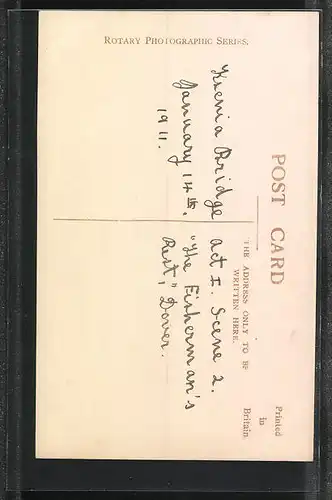 ROTARY PHOTOGRAPHIC SERIES.
POST CARD
THE ADDRESS ONLY TO BE
WRITTEN HERE.
Printed
in
Britain.
Xenia Bridge Act I. Scene 2.
January 14th. "The Fisherman's
1911. Rest", Dover.